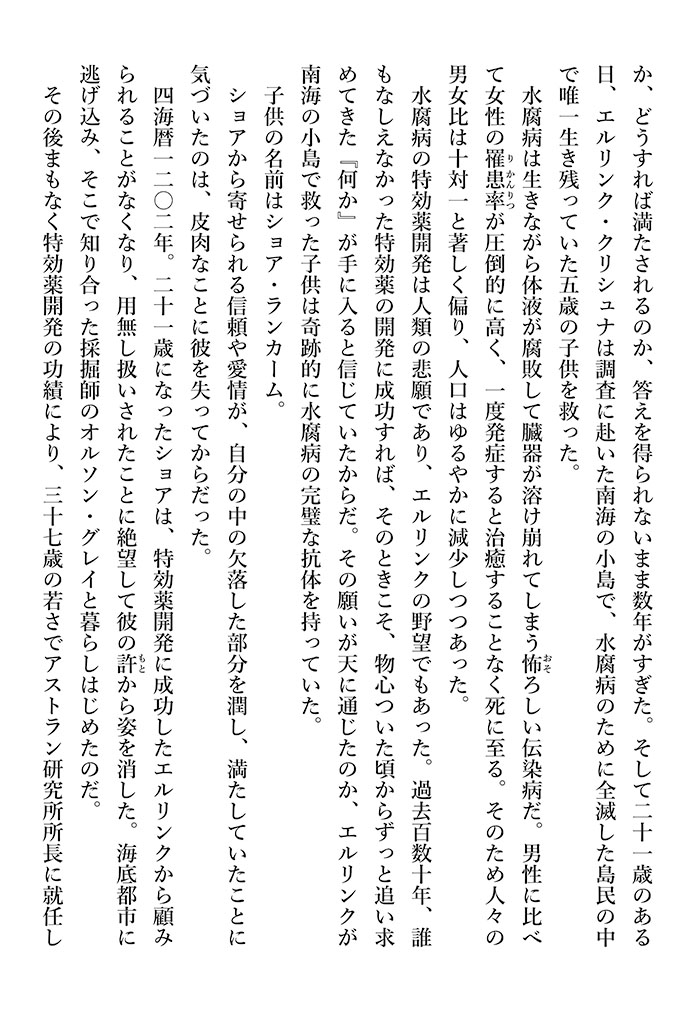 か、どうすれば満たされるのか、答えを得られないまま数年がすぎた。そして二十一歳のある
日、エルリンク・クリシュナは調査に赴いた南海の小島で、水腐病のために全滅した島民の中
で唯一生き残っていた五歳の子供を救った。
　水腐病は生きながら体液が腐敗して臓器が溶け崩れてしまう怖ろしい伝染病だ。男性に比べ
て女性の罹患率が圧倒的に高く、一度発症すると治癒することなく死に至る。そのため人々の
男女比は十対一と著しく偏り、人口はゆるやかに減少しつつあった。
　水腐病の特効薬開発は人類の悲願であり、エルリンクの野望でもあった。過去百数十年、誰
もなしえなかった特効薬の開発に成功すれば、そのときこそ、物心ついた頃からずっと追い求
めてきた『何か』が手に入ると信じていたからだ。その願いが天に通じたのか、エルリンクが
南海の小島で救った子供は奇跡的に水腐病の完璧な抗体を持っていた。
　子供の名前はショア・ランカーム。
　ショアから寄せられる信頼や愛情が、自分の中の欠落した部分を潤し、満たしていたことに
気づいたのは、皮肉なことに彼を失ってからだった。
　四海暦一二〇二年。二十一歳になったショアは、特効薬開発に成功したエルリンクから顧み
られることがなくなり、用無し扱いされたことに絶望して彼の許から姿を消した。海底都市に
逃げ込み、そこで知り合った採掘師のオルソン・グレイと暮らしはじめたのだ。
　その後まもなく特効薬開発の功績により、三十七歳の若さでアストラン研究所所長に就任し